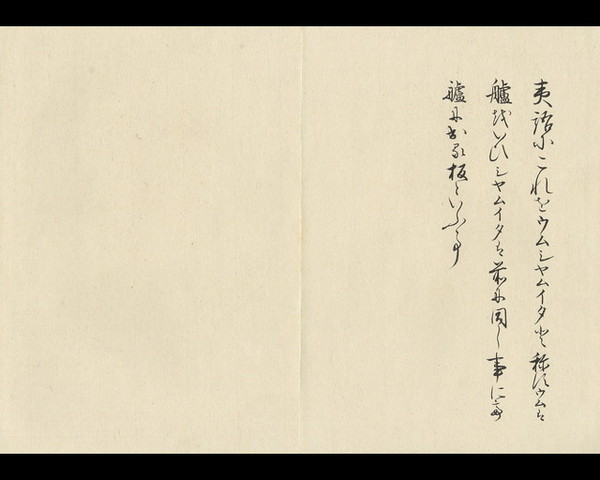 夷語にこれをウムシヤムイタと称すウムは
艫をいひシヤムイタは前に同し事にて
艫に当る板といふ事